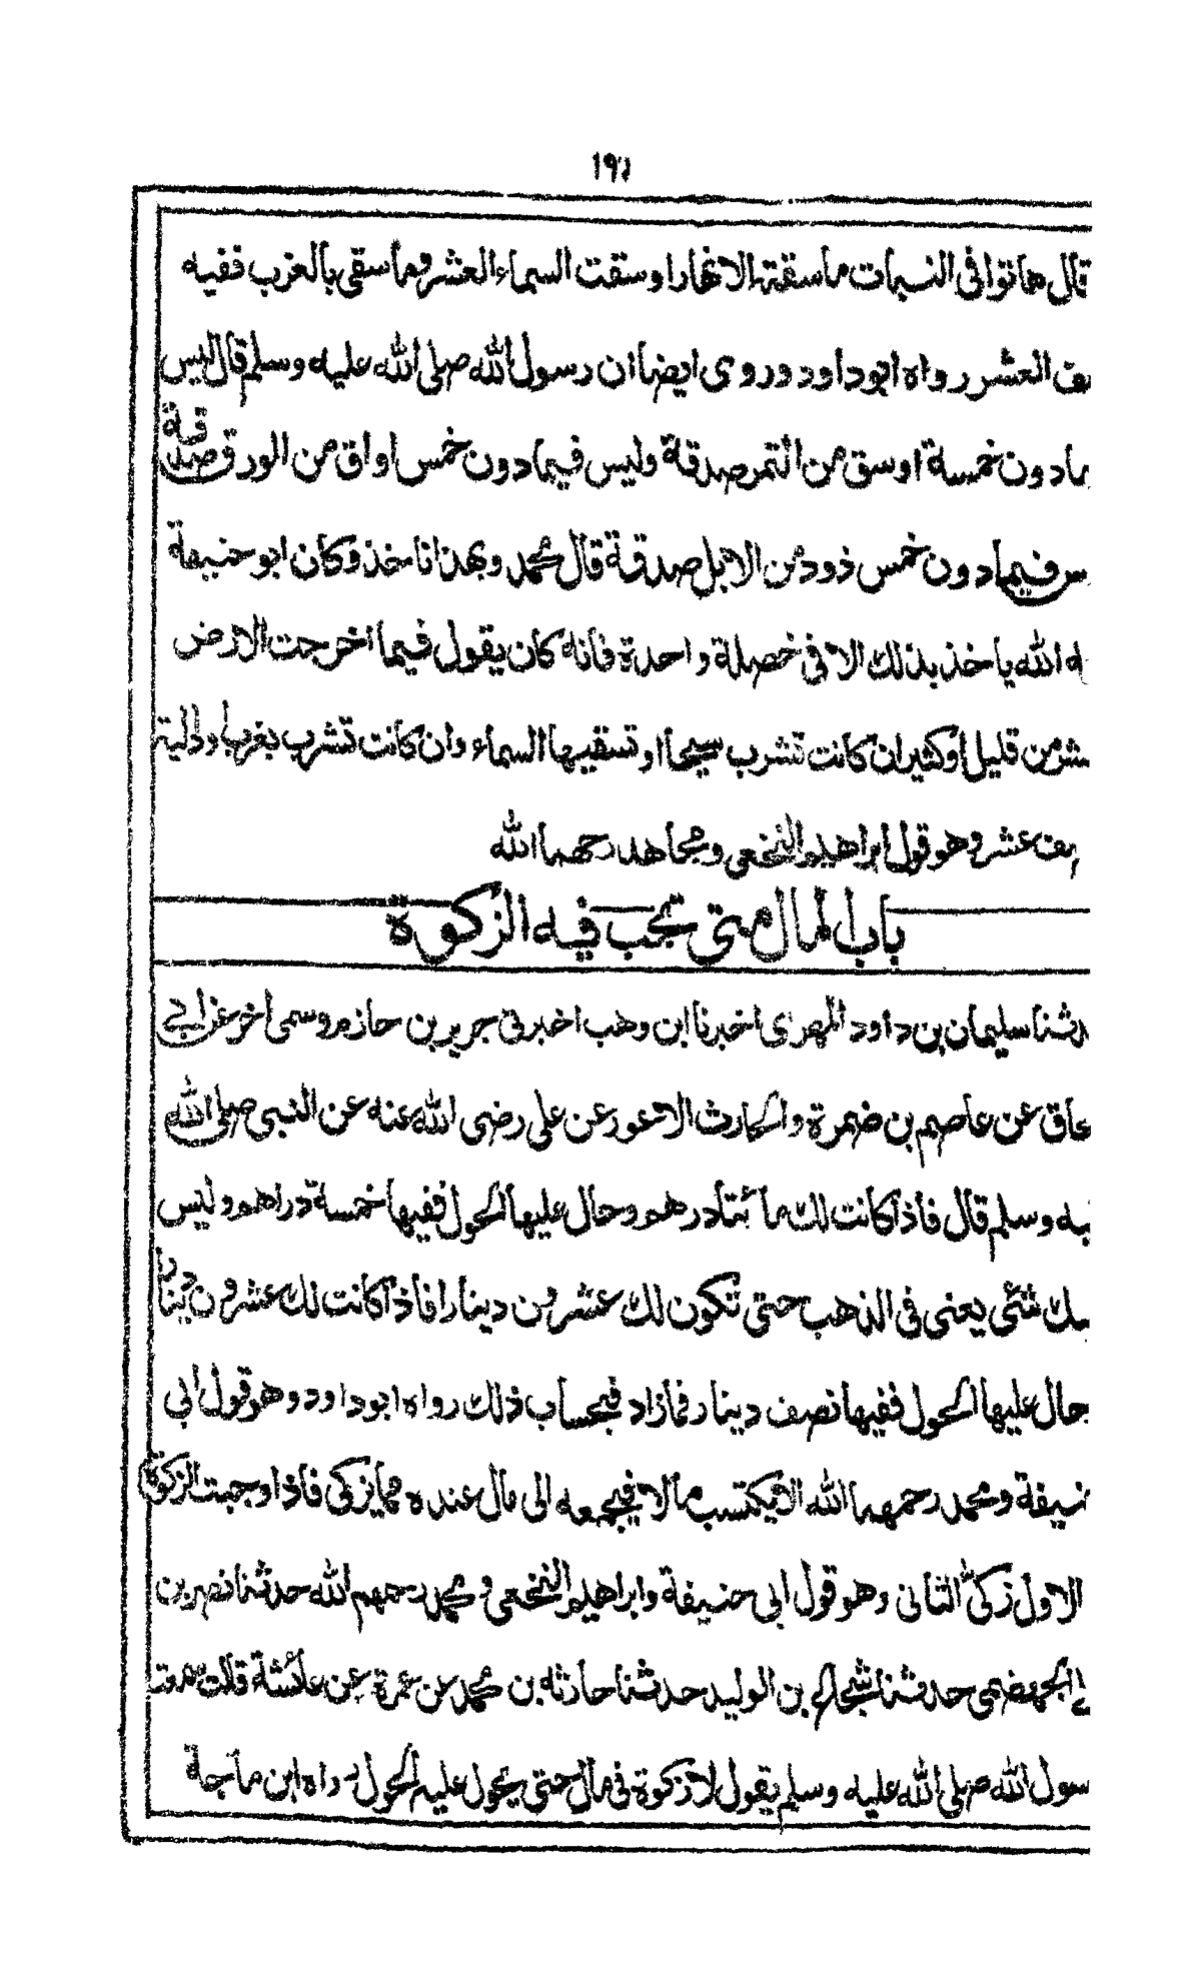 ١٩٦
قال هاتوا فى النبات ماسقته الانهار او سقت السماء العشر وما سقى بالغرب ففيه
صف العشر رواه ابوداود وروى ايضا ان رسول الله صلى الله عليه وسلم قال ليس
مادون خمسة اوسق من التمر صدقة وليس فيمادون خمس اواق من الورق صدقة
س فيمادون خمس ذود من الابل صدقة قال محمد وبهذا ناخذ وكان ابو حنيفة
ه الله ياخذ بذلك الا فى خصلة واحدة فانه كان يقول فيما اخرجت الارض
شر من قليل او كثير ان كانت تشرب سيحا او تسقيها السماء وان كانت تشرب بغرب او دالية
صف عشر وهو قول ابراهيم النخعى ومجاهد رحمهما الله
باب المال متى تجب فيه الزكوة
دثنا سليمان بن داود المهرى اخبرنا ابن وهب اخبرنى جرير بن حازم وسمى اخر عن ابى
عاق عن عاصم بن ضمرة والحارث الاعور عن على رضى الله عنه عن النبى صلى الله
ليه وسلم قال فاذا كانت لك مائتا درهم وحال عليها الحول ففيها خمسة دراهم وليس
يك شئى يعنى فى الذهب حتى تكون لك عشرون دينارا فاذا كانت لك عشرون دينارا
حال عليها الحول ففيها نصف دينار فمازاد فبحساب ذلك رواه ابوداود وهو قول ابى
نيفة ومحمد رحمهما الله الا يكتسب مالا فيجمعه الى مال عنده مما يزكى فاذا وجبت الزكوة
الاول زكى الثانى وهو قول ابى حنيفة وابراهيم النخعى ومحمد رحمهم الله حدثنا نصر بن
لى الجهضمى حدثنا شجاع بن الوليد حدثنا حارثه بن محمد عن عمرة عن عائشة قالت سمعت
سول الله صلى الله عليه وسلم يقول لا زكوة فى مال حتى يحول عليه الحول رواه ابن ماجة